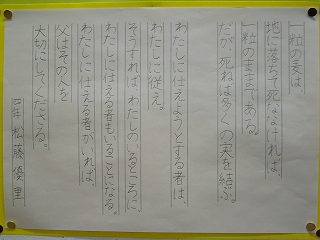 一粒の麦は、
地に落ちて死ななければ、
一粒のままである。
だが、死ねば、多くの実を結ぶ。
わたしに仕えようとする者は、
わたしに従え。
そうすれば、わたしのいるところに、
わたしに仕える者もいることになる。
わたしに仕える者がいれば、
父はその人を
大切にしてくださる。
松藤優里